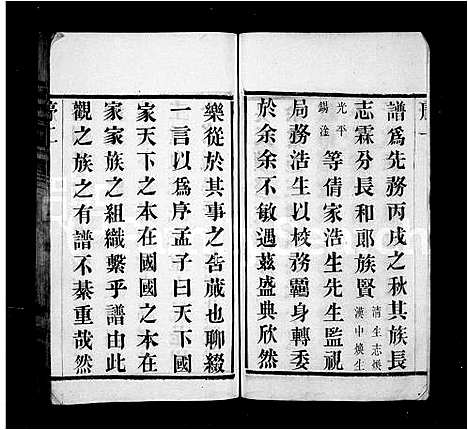 譜爲先務丙戌之秋其族長
志霖分長和郎族賢清生志煥漢中煥生
光平錫淦等倩家浩生先生監視
局務浩生以校務覊身轉委
於余余不敏遇茲盛典欣然
樂從於其事之告蕆也聊綴
一言以爲序孟子曰天下國
家天下之本在國國之本在
家家族之組織繫乎譜由此
觀之族之有譜不綦重哉然
序二